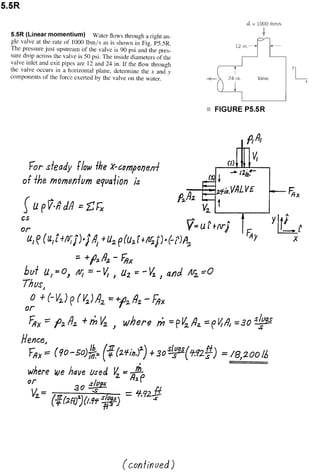 5.5R
5.5R (Linear momentum) Water flows through a right angle valve at the rate of 1000 lbm/s as is shown in Fig. P5.5R.
The pressure just upstream of the valve is 90 psi and the pressure drop across the valve is 50 psi. The inside diameters of the
valve inlet and exit pipes are 12 and 24 in. If the flow through
the valve occurs in a horizontal plane, determine the x and y
components of the force exerted by the valve on the water.
ṁ = 1000 lbm/s
12 in.
24 in. Valve
y
x
FIGURE P5.5R
For steady flow the x-component
of the momentum equation is
∫ u ρ V̄·n̂ dA = ΣFx
cs
or
u₁ρ(u₁î+v₁ĵ)·ĵ A₁ + u₂ρ(u₂î+v₂ĵ)·(-î)A₂
= +p₂A₂ - F_Ax
but u₁=0, v₁ = -V₁, u₂ = -V₂, and v₂=0
Thus,
0 + (-V₂)ρ(V₂)A₂ = +p₂A₂ - F_Ax
or
F_Ax = p₂A₂ + ṁV₂, where ṁ = ρV₂A₂ = ρV₁A₁ = 30 slugs/s
Hence,
F_Ax = (90-50) lb/in.² (π/4 (24in.)²) + 30 slugs/s (4.92 ft/s) = 18,200 lb
where we have used V₂ = ṁ/(A₂ρ)
or
V₂ = 30 slugs/s / ((π/4 (2ft)²)(1.94 slugs/ft³)) = 4.92 ft/s
p₁A₁
V₁
(1)
12in
(2)
24in. VALVE
p₂A₂
V₂
F_Ax
F_Ay
V̄ = uî+vĵ
y ĵ
î
x
(continued)